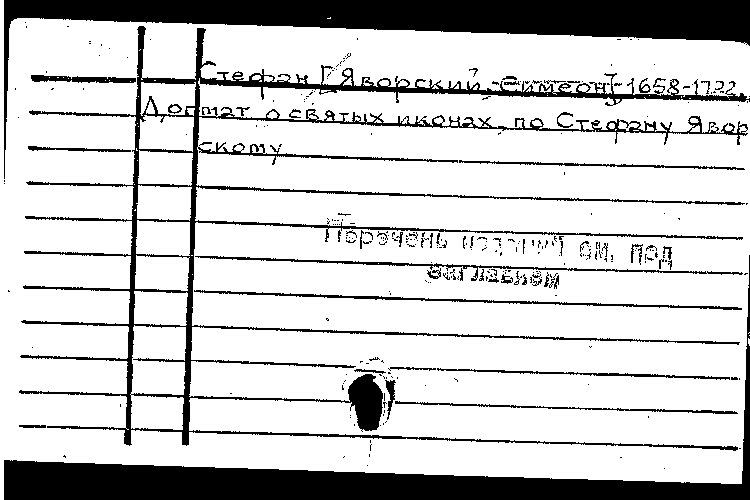 Стефан [Яворский, Симеон] 1658-1722.
Догмат о святых иконах, по Стефану Явор
скому
Перечень изданий см. под
заглавием